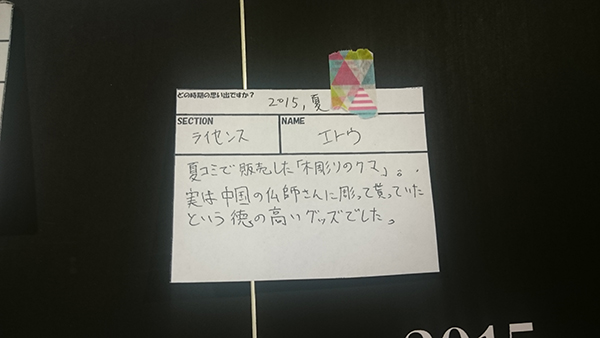 どの時期の思い出ですか?
2015,夏
SECTION
NAME
ライセンス
エトウ
夏コミで販売した「木彫りのクマ」。
実は中国の仏師さんに彫って貰っていた
という徳の高いグッズでした。
2015